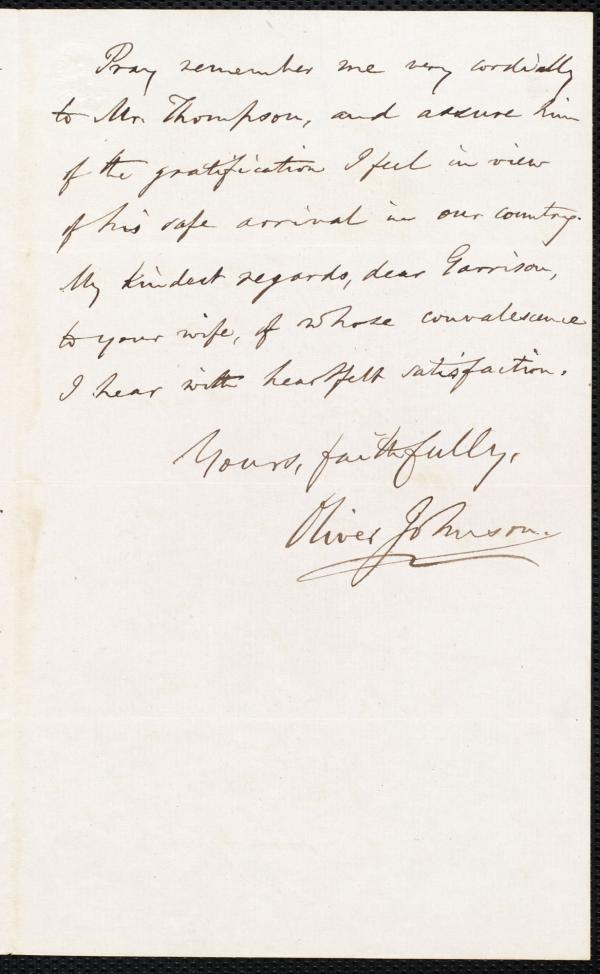 Pray remember me very cordially
to Mr. Thompson, and assure him
of the gratification I feel in view
of his safe arrival in our country.
My kindest regards, dear Garrison,
to your wife, of whose convalescence
I hear with heartfelt satisfaction.
Yours, faithfully,
Oliver Johnson.